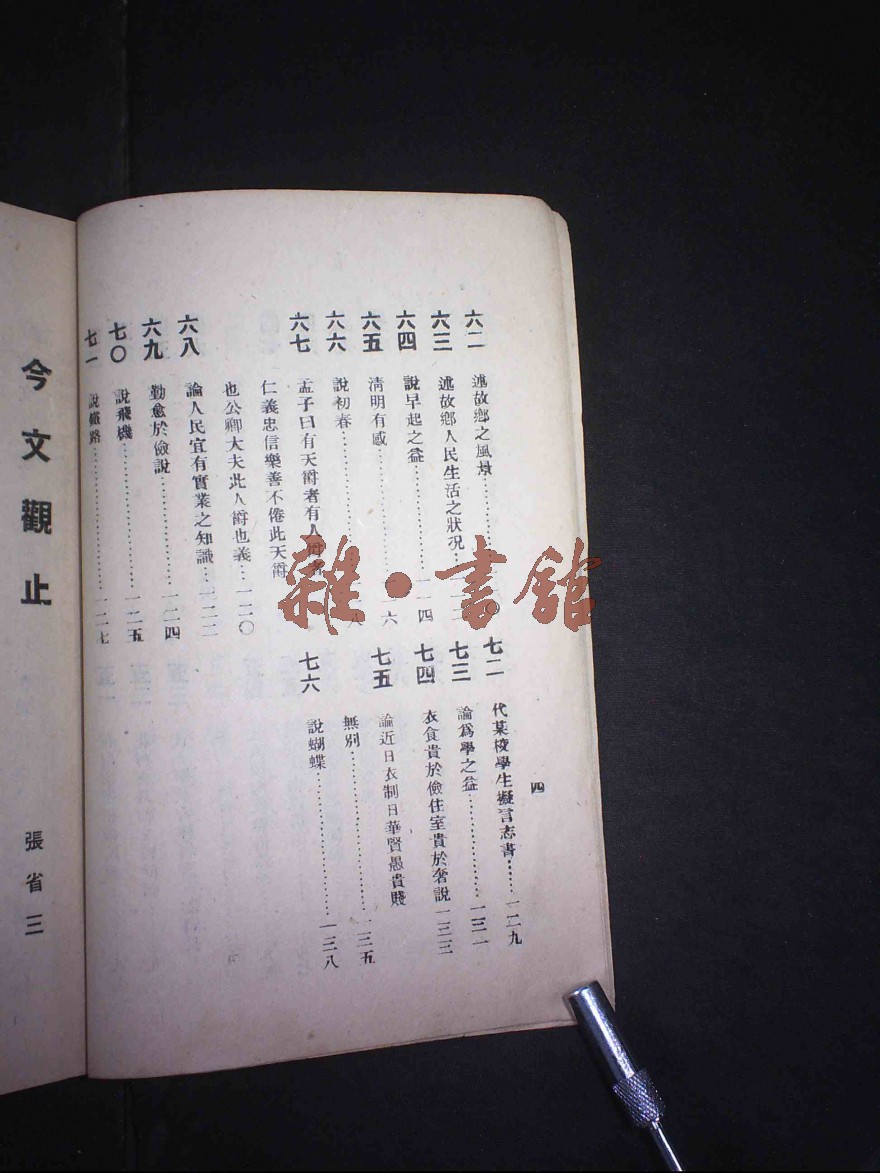 四
六二 述故鄉之風景
六三 述故鄉人民生活之狀況
六四 說早起之益……一一四
六五 清明有感……一一六
六六 說初春
六七 孟子曰有天爵者有人爵者
仁義忠信樂善不倦此天爵
也公卿大夫此人爵也義…一二〇
六八 論人民宜有實業之知識…一二二
六九 勤愈於儉說……一二四
七〇 說飛機……一二五
七一 說鐵路……一二七
七二 代某校學生擬言志書……一二九
七三 論爲學之益……一三一
七四 衣食貴於儉住室貴於奢說 一三三
七五 論近日衣制日華賢愚貴賤
無別……一三五
七六 說蝴蝶……一三八
今文觀止
張省三
雜·書館